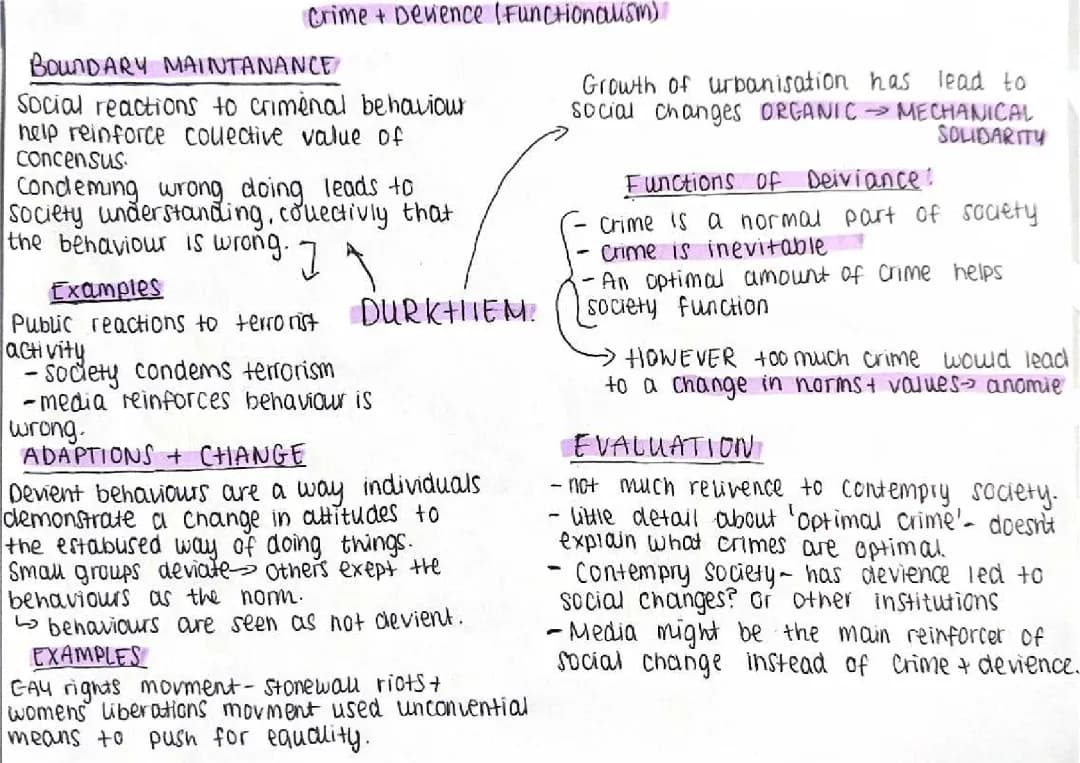 Crime + Devience (Functionalism)
BOUNDARY MAINTANANCE
Social reactions to criminal behaviour
help reinforce collective value of
concensus.
Condeming wrong doing leads to
society understanding, collectivly that
the behaviour is wrong.
Examples
Public reactions to terrorist
activity
- society condems terrorism
- media reinforces behaviour is
wrong.
ADAPTIONS + CHANGE
Devient behaviours are a way individuals
demonstrate a change in attitudes to
the estabused way of doing things.
Small groups deviate → others exept the
behaviours as the norm.
↳ behaviours are seen as not devient.
EXAMPLES
GAY rights movment - stonewall riots +
womens liberations movment used unconvential
means to push for equality.
DURKHIEM.
Growth of urbanisation has lead to
social changes ORGANIC → MECHANICAL
SOLIDARITY
Functions of Deiviance:
- crime is a normal part of society
- crime is inevitable
- An optimal amount of crime helps
society function
→ HOWEVER too much crime would lead
to a change in norms + values → anomie
EVALUATION
- not much relivence to contempry society.
- little detail about 'optimal crime' - doesn't
explain what crimes are optimal.
- Contempry society - has devience led to
social changes? or other institutions
- Media might be the main reinforcer of
social change instead of crime + devience.